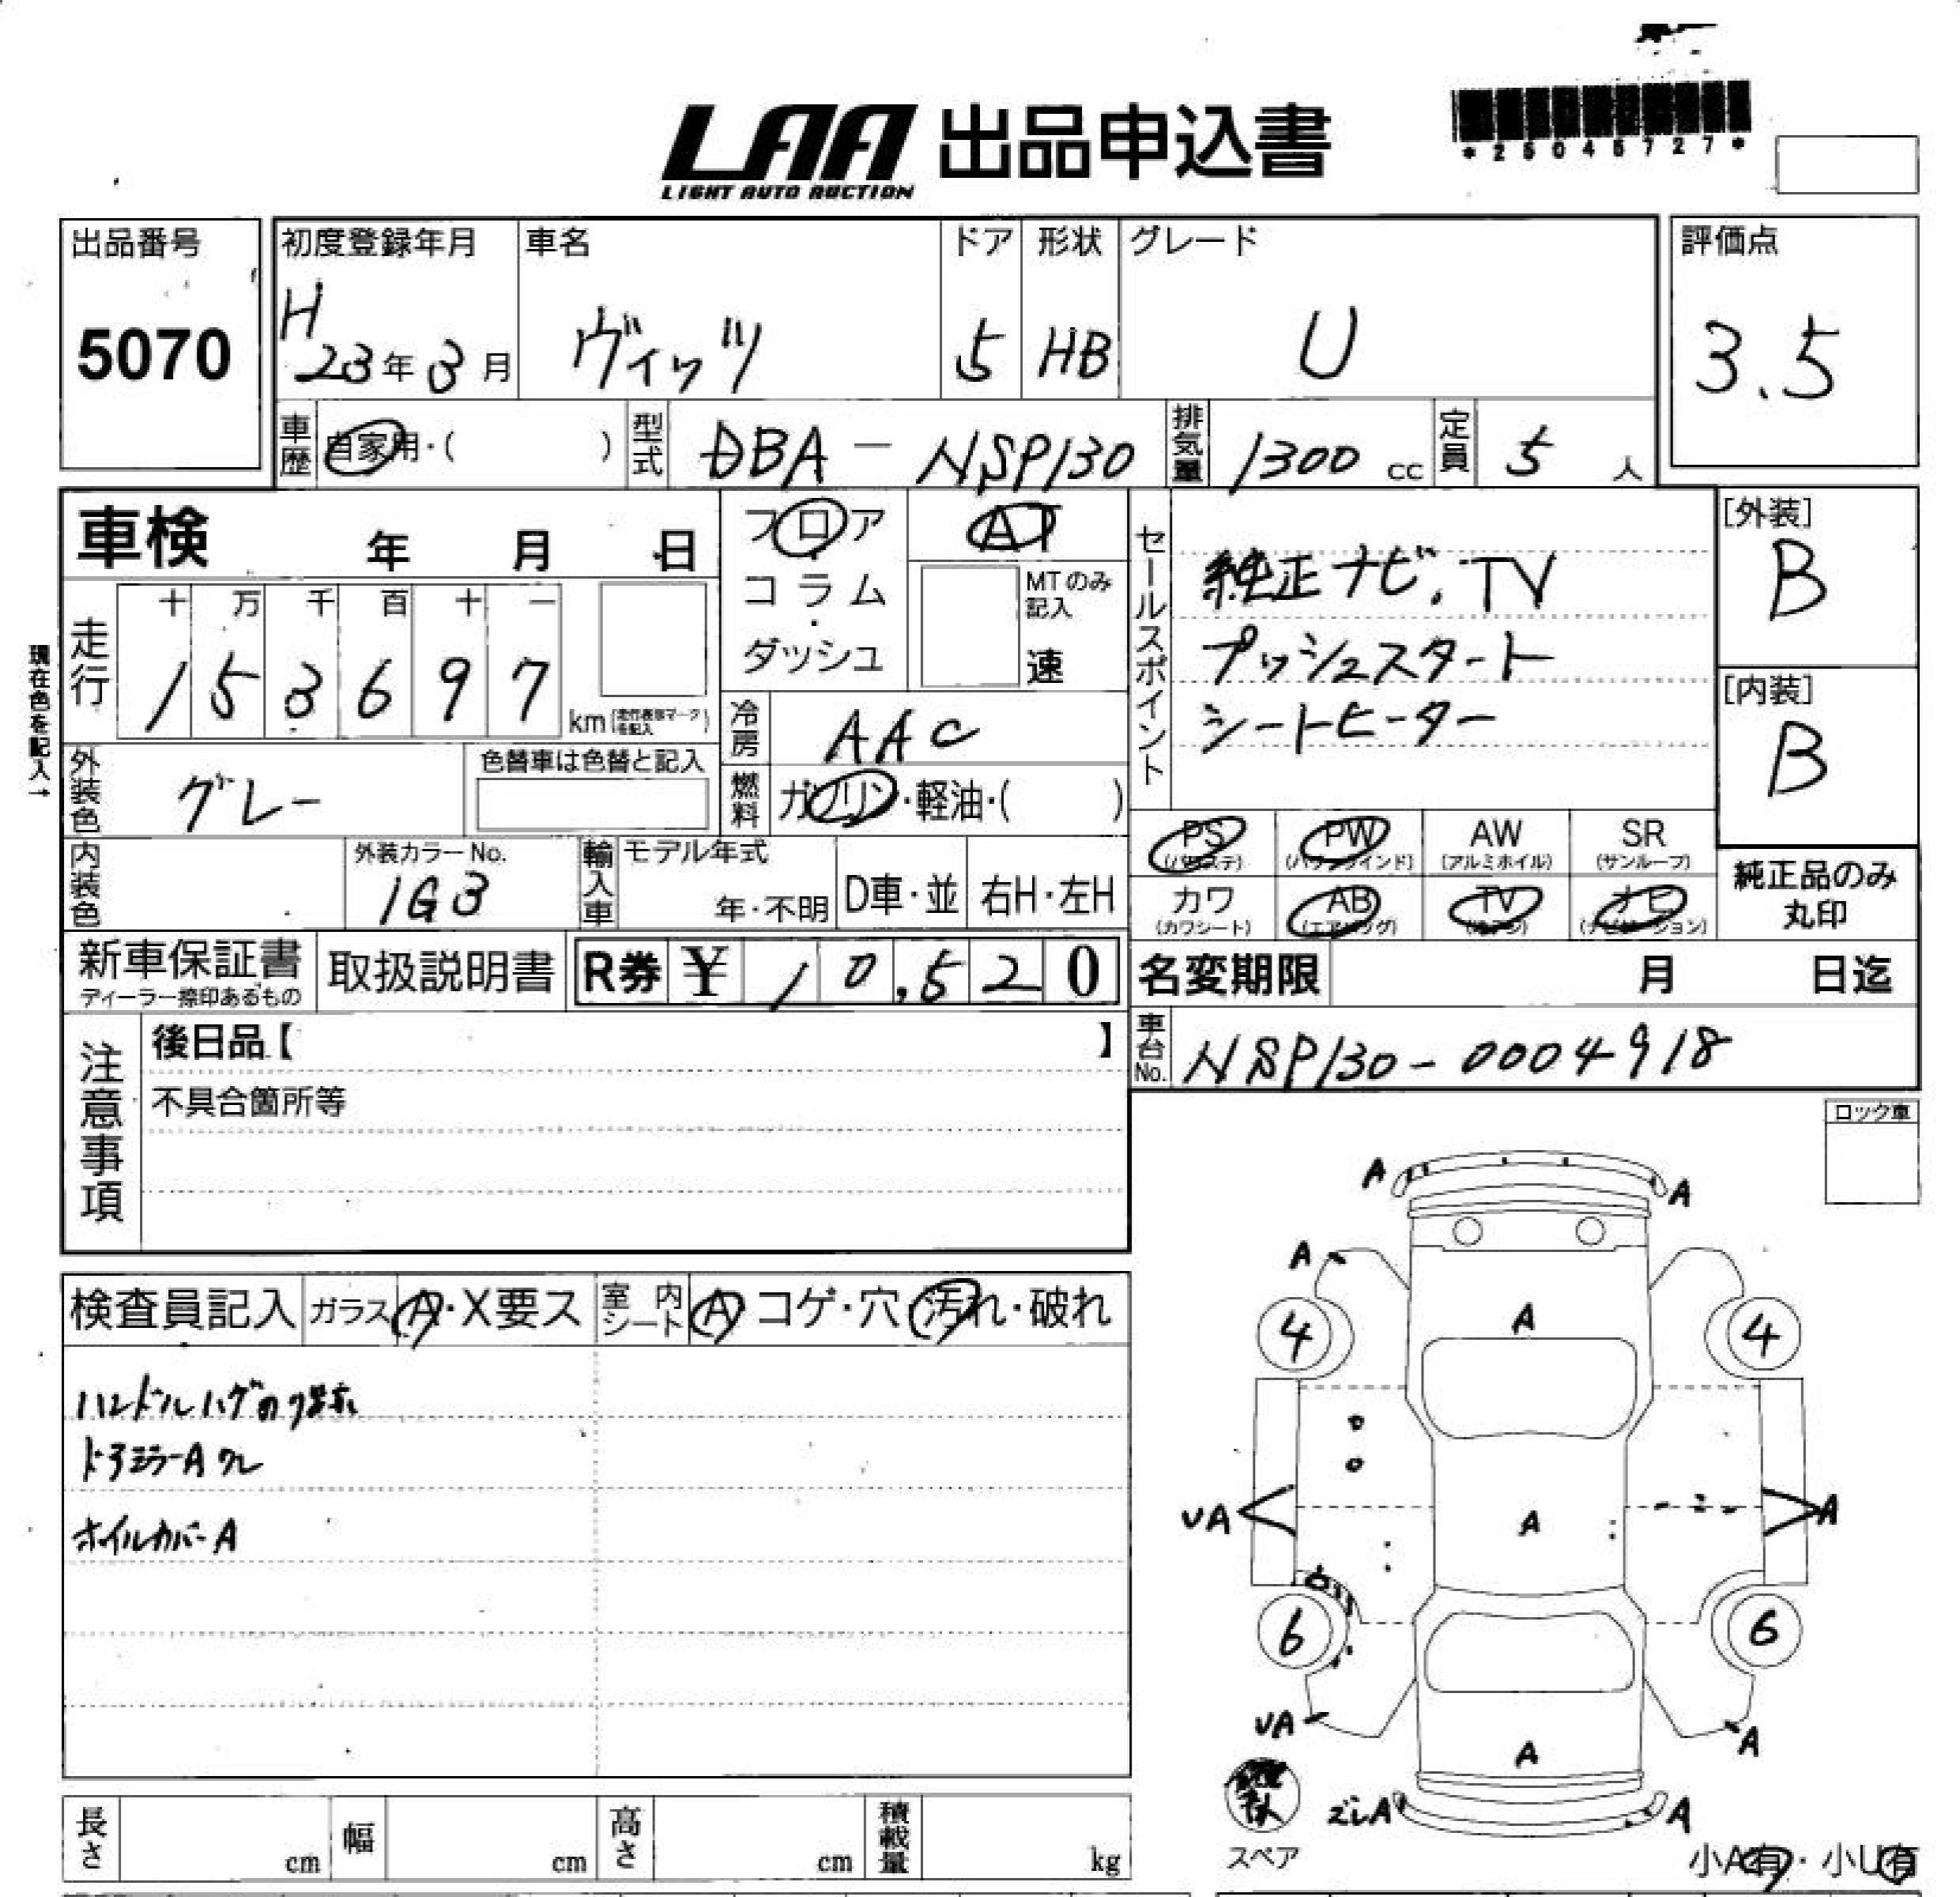 LAA 出品申込書
LIGHT AUTO AUCTION
*25045727*
出品番号
5070
初度登録年月
H
23年3月
車名
ヴィッツ
ドア
5
形状
HB
グレード
U
評価点
3.5
車歴 自家用・( )
型式 DBA-NSP130
排気量 1300 cc
定員 5 人
車検 年 月 日
フロア
コラム
・
ダッシュ
AT
MTのみ
記入
速
セールスポイント
純正ナビ、TV
プッシュスタート
シートヒーター
[外装]
B
[内装]
B
現在色を記入→
走行
十 万 千 百 十 一
1 5 3 6 9 7
km (走行表示マークを記入)
冷房 AAC
燃料 ガソリン・軽油・( )
外装色 グレー
色替車は色替と記入
内装色
外装カラーNo.
1G3
輸入車
モデル年式
年・不明
D車・並
右H・左H
PS (パワステ)
PW (パワーウインド)
AW (アルミホイル)
SR (サンルーフ)
カワ (カワシート)
AB (エアバッグ)
TV (テレビ)
ナビ (ナビゲーション)
純正品のみ
丸印
新車保証書
ディーラー捺印あるもの
取扱説明書
R券 ¥ 10,520
名変期限 月 日迄
車台No. NSP130-0004918
注意事項
後日品【 】
不具合箇所等
ロック車
検査員記入
ガラス A・X要ス
室内シート A コゲ・穴・汚れ・破れ
ハンドルハゲ
ドアミラーA
ホイルカバーA
A
A
A
A
4
4
VA
A
A
6
6
VA
A
A
A
A
スペア
小A有・小U有
長さ cm
幅 cm
高さ cm
積載量 kg